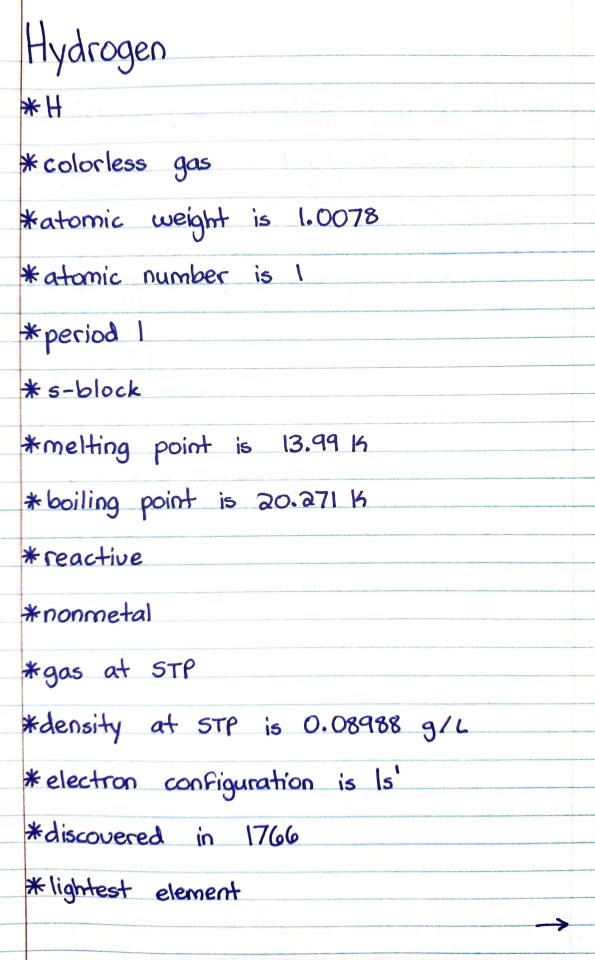 Hydrogen
*H
*colorless gas
*atomic weight is 1.0078
*atomic number is 1
*period 1
*s-block
*melting point is 13.99 K
*boiling point is 20.271 K
*reactive
*nonmetal
*gas at STP
*density at STP is 0.08988 g/L
*electron configuration is 1s¹
*discovered in 1766
*lightest element
→